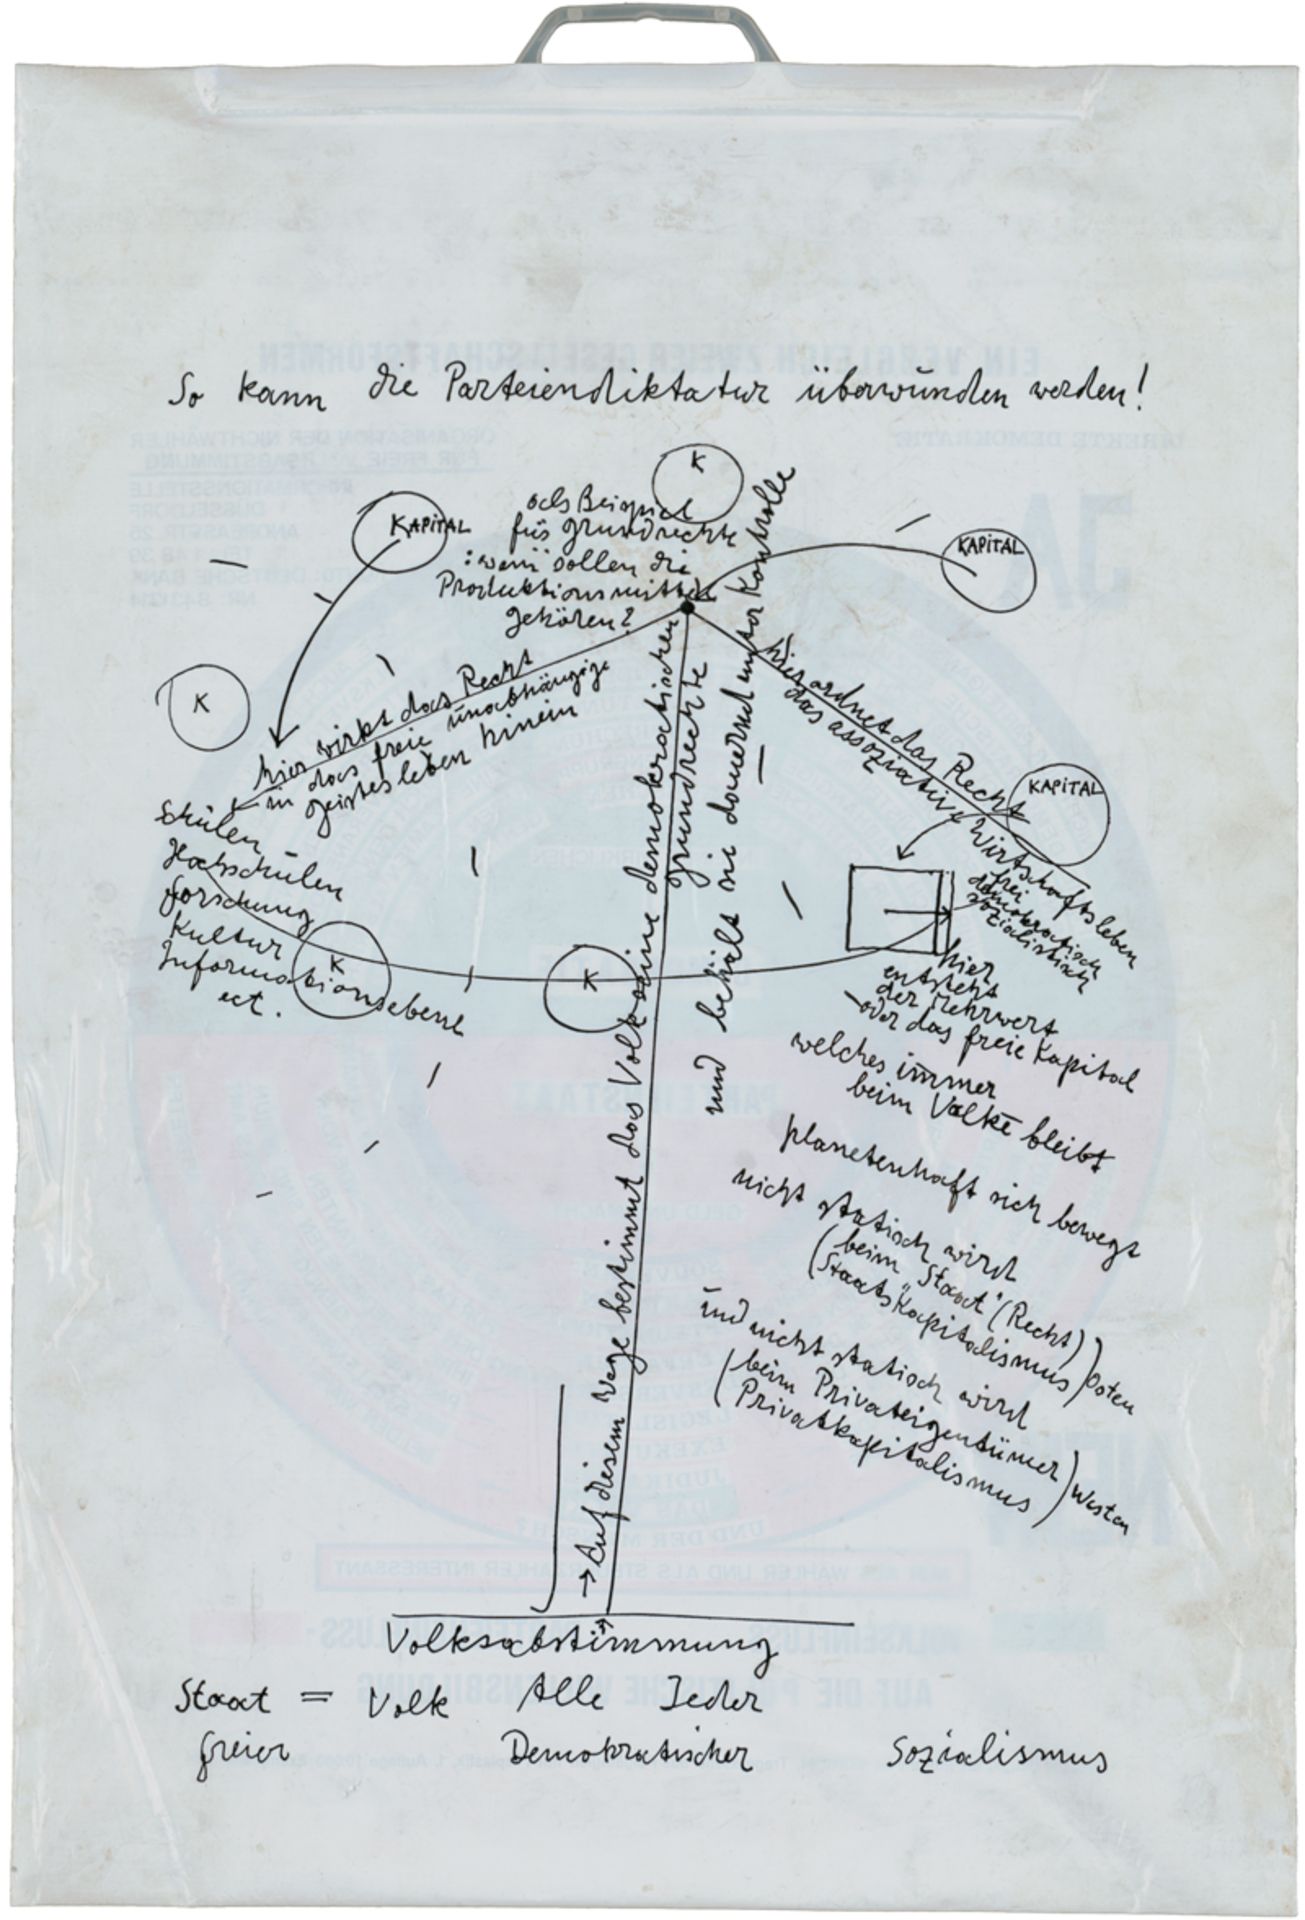 So kann die Parteiendiktatur überwunden werden!
K
KAPITAL
als Beispiel
für Grundrechte
: wem sollen die
Produktionsmittel
gehören?
KAPITAL
K
hier wirkt das Recht
in das freie unabhängige
Geistesleben hinein
Schulen
Hochschulen
Forschung
Kultur
Informationsebene
ect.
K
K
→ Auf diesem Wege bestimmt das Volk seine demokratischen
Grundrechte
und behält sie dauernd unter Kontrolle
hier ordnet das Recht
das assoziative Wirtschaftsleben
frei
demokratisch
sozialistisch
KAPITAL
hier
entsteht
der Mehrwert
oder das freie Kapital
welches immer
beim Volke bleibt
planetenhaft sich bewegt
nicht statisch wird
(beim "Staat" (Recht))
(Staatskapitalismus) Osten
und nicht statisch wird
(beim Privateigentümer)
(Privatkapitalismus) Westen
Volksabstimmung
Staat = Volk Alle Jeder
freier Demokratischer Sozialismus
EIN VERGLEICH ZWEIER GESELLSCHAFTSFORMEN
DIREKTE DEMOKRATIE
JA
ORGANISATION DER NICHTWÄHLER
FÜR FREIE VOLKSABSTIMMUNG
INFORMATIONSSTELLE
DÜSSELDORF
ANDREASSTR. 25
PARTEIENSTAAT
AUF DIE POLITISCHE WILLENSBILDUNG